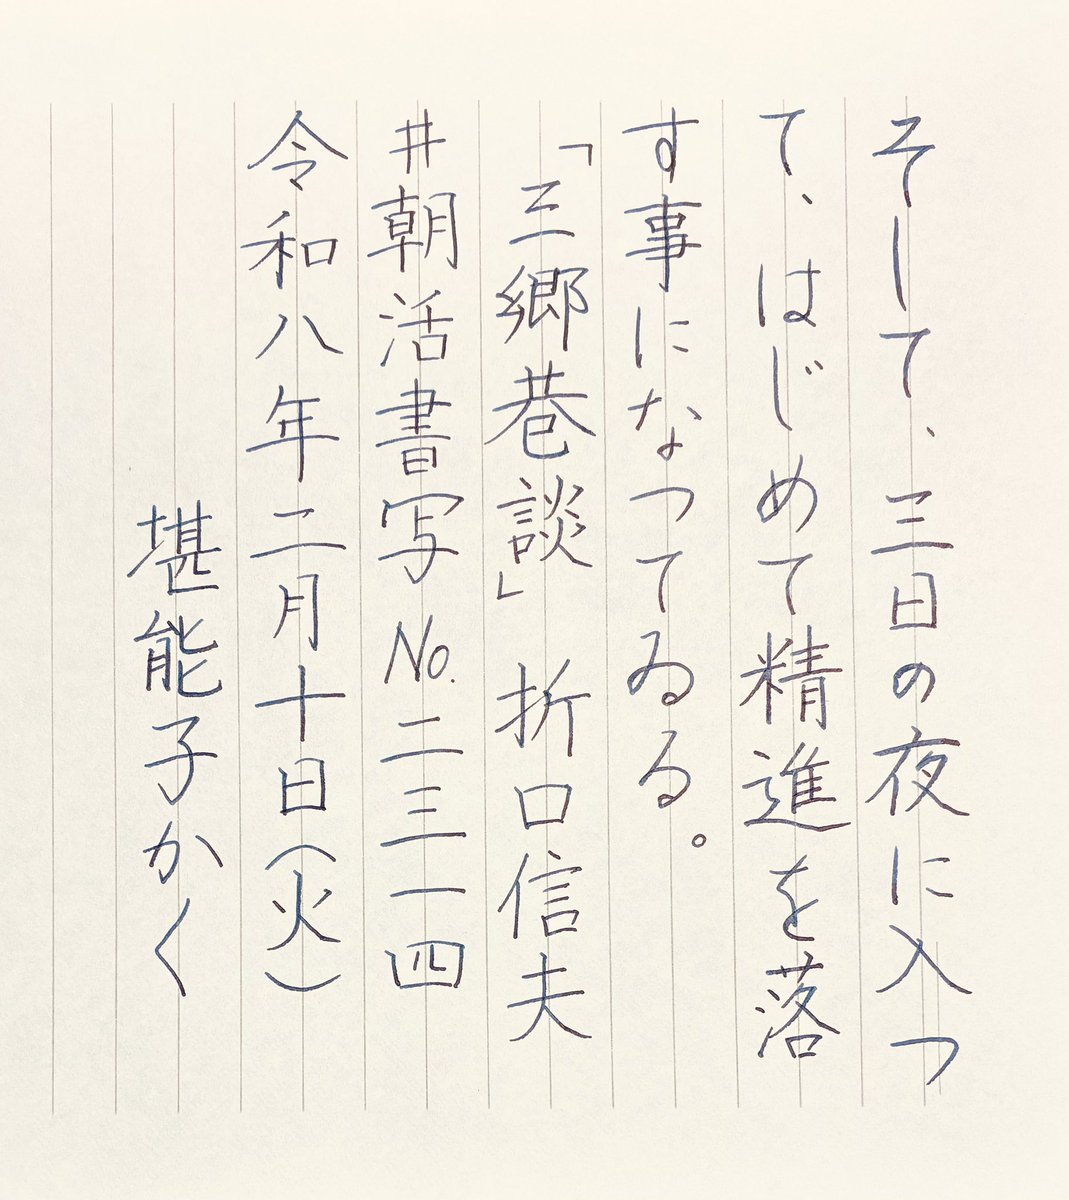 そして、三日の夜に入つ
て、はじめて精進を落
す事になつてゐる。
「三郷巷談」 折口信夫
#朝活書写 No.二三一四
令和八年二月十日(火)
堪能子かく